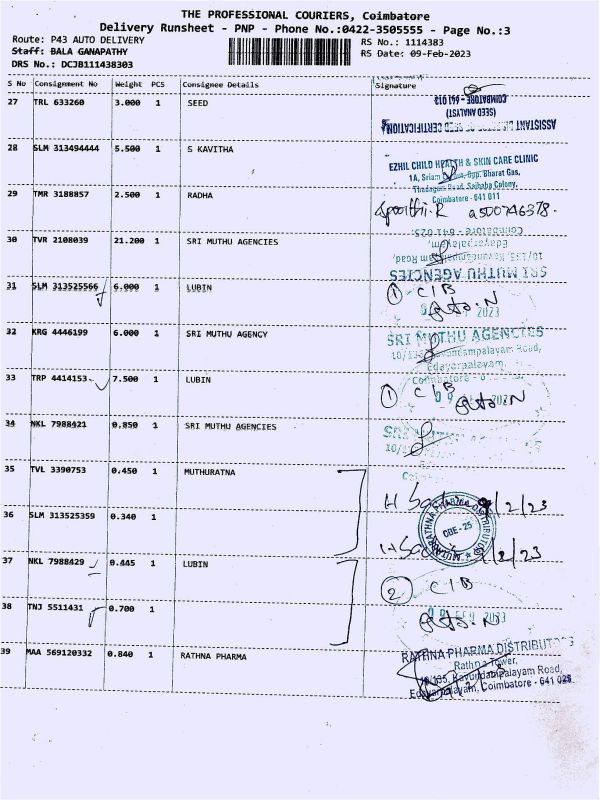 THE PROFESSIONAL COURIERS, Coimbatore
Delivery Runsheet - PNP - Phone No.:0422-3505555 - Page No.:3
Route: P43 AUTO DELIVERY
RS No.: 1114383
Staff: BALA GANAPATHY
RS Date: 09-Feb-2023
DRS No.: DCJB111438303
S No Consignment No Weight PCS Consignee Details Signature
27 TRL 633260 3.000 1 SEED
COIMBATORE - 641 013
(SEED ANALYST)
ASSISTANT OF SEED CERTIFICATION
28 SLM 313494444 5.500 1 S KAVITHA
EZHIL CHILD HEALTH & SKIN CARE CLINIC
1A, Sriam Opp. Bharat Gas,
Road, Saibaba Colony,
Coimbatore - 641 011
29 TMR 3188857 2.500 1 RADHA
30 TVR 2108039 21.200 1 SRI MUTHU AGENCIES
Coimbatore - 641 025
Edayarpalayam,
10/135, Kavundampalayam Road,
SRI MUTHU AGENCIES
31 SLM 313525566 6.000 1 LUBIN
1 CIB
2023
32 KRG 4446199 6.000 1 SRI MUTHU AGENCY
SRI MUTHU AGENCIES
Kavundampalayam Road,
Edayarpalayam,
Coimbatore
33 TRP 4414153 7.500 1 LUBIN
1 CIB
34 NKL 7988421 0.850 1 SRI MUTHU AGENCIES
35 TVL 3390753 0.450 1 MUTHURATNA
9/2/23
36 SLM 313525359 0.340 1
CBE-25
9/2/23
37 NKL 7988429 0.445 1 LUBIN
2 CIB
38 TNJ 5511431 0.700 1
39 MAA 569120332 0.840 1 RATHNA PHARMA
RATHNA PHARMA DISTRIBUTORS
Rathna Tower,
10/135, Kavundampalayam Road,
Edayarpalayam, Coimbatore - 641 025